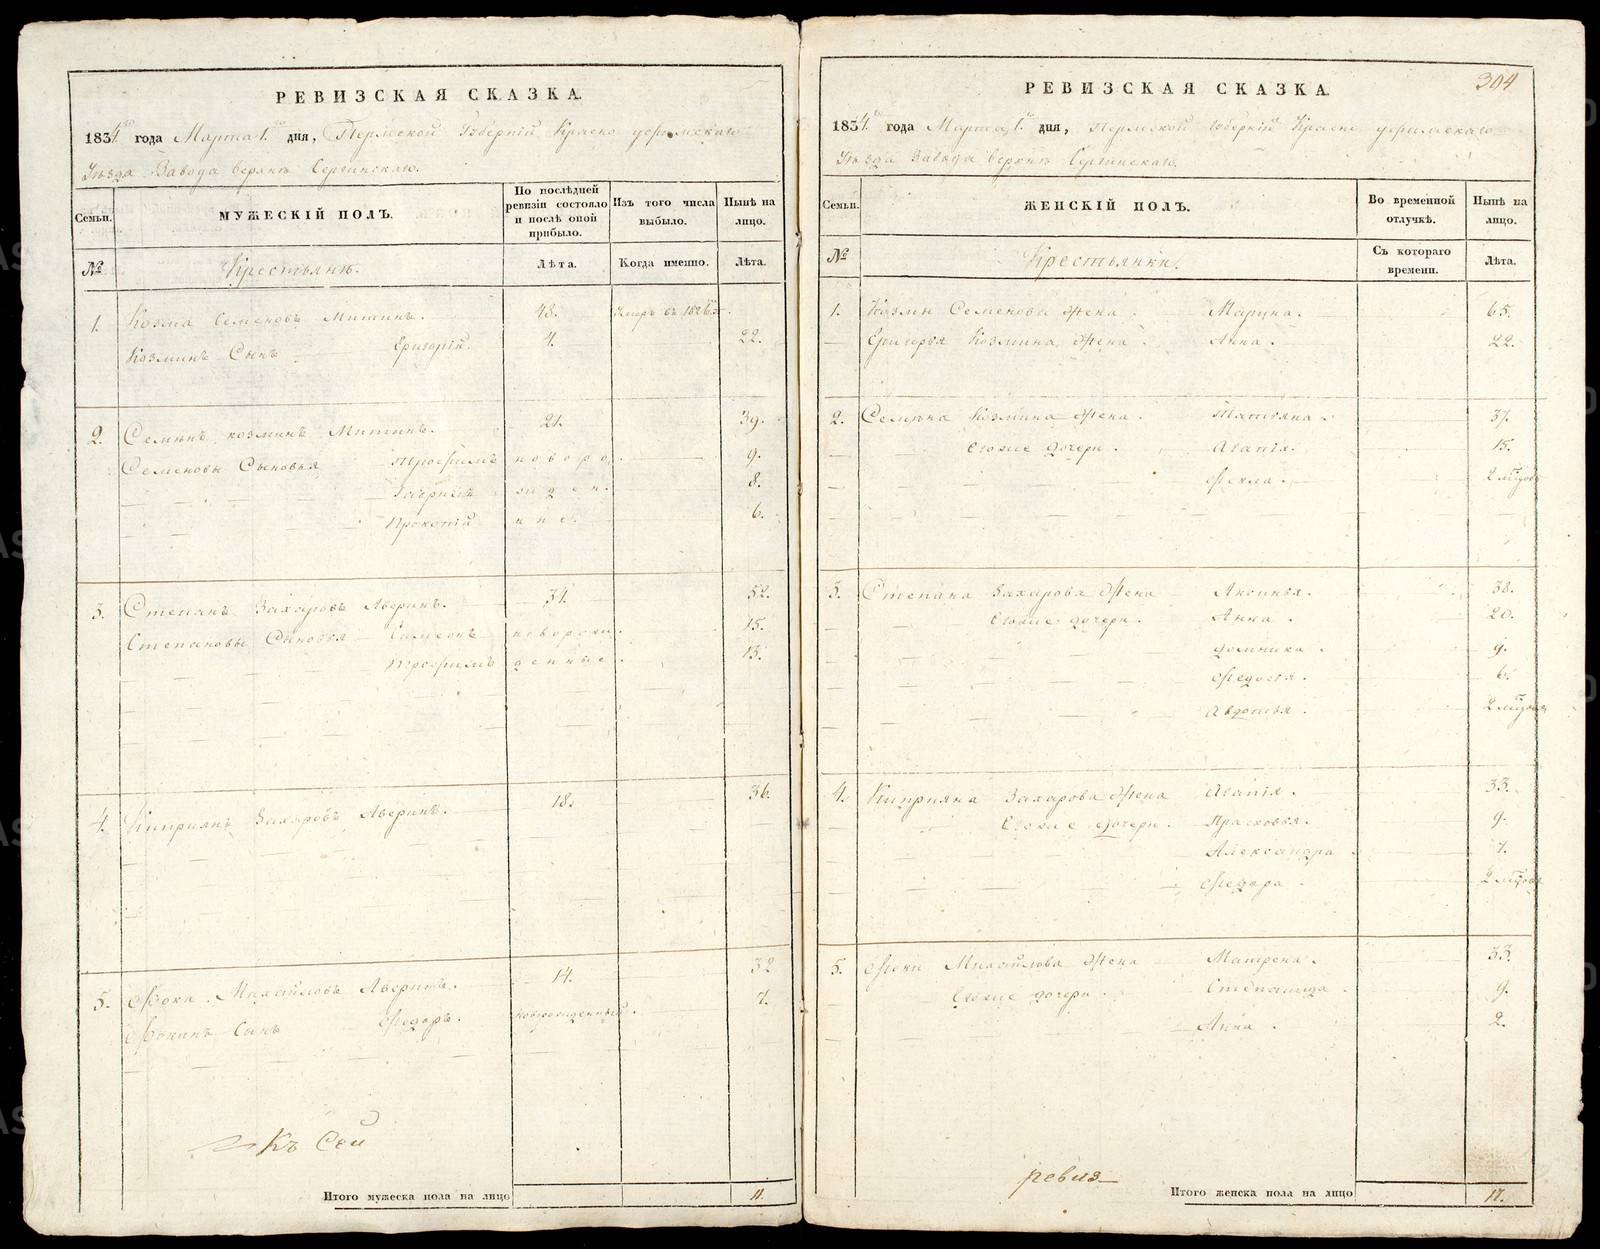 РЕВИЗСКАЯ СКАЗКА.
1834го года Марта 1го дня, Пермской Губернїи Красно уфимскаго
Уѣзда Завода верхнѣ Сергинскаго.
Семьи.
МУЖЕСКІЙ ПОЛЪ.
По послѣдней ревизіи состояло и послѣ оной прибыло.
Изъ того числа выбыло.
Нынѣ на лицо.
№
Крестьянѣ.
Лѣта.
Когда именно.
Лѣта.
1. Козма Семеновъ Митинъ. 48. Умеръ въ
Козминъ Сынъ Григорїй. 4. 22.
2. Семѣнъ козминъ Митинъ. 21. 39.
Семеновы Сыновья Трофимъ новоро 9.
жден. 8.
Прокопїй ные. 6.
3. Степанъ Захаровъ Аверинъ. 34. 52.
Степановы Сыновья новорож 15.
Трофимъ денные. 13.
4. Киприянъ Захаровъ Аверинъ. 18. 36.
5. Фока Михайловъ Аверинъ. 14. 32
Фокинъ Сынъ Федоръ. новорожденный. 7.
Къ Сей
Итого мужеска пола на лицо 11.
304
РЕВИЗСКАЯ СКАЗКА.
1834го года Марта 1го дня, Пермской Губернїи Красно уфимскаго
Уѣзда Завода верхнѣ Сергинскаго.
Семьи.
ЖЕНСКІЙ ПОЛЪ.
Во временной отлучкѣ.
Нынѣ на лицо.
№
Крестьянки.
Съ котораго времени.
Лѣта.
1. Козмы Семенова Жена Марина. 65.
Григорья Козмина Жена Анна. 22.
2. Семѣна Козмина Жена Татьяна. 37.
Егоже дочери Агапїя. 15.
Фекла. 2 мцовъ
3. Степана Захарова Жена Аксинья. 38.
Егоже дочери. Анна. 20.
Домника. 9.
Федосья. 6.
Авдотья. 2 мцовъ
4. Киприяна Захарова Жена Агапїя. 33.
Егоже дочери. Прасковья. 9.
Александра 7.
Федора. 2 мцовъ
5. Фоки Михайлова Жена Матрена. 33.
Егоже дочери Степанида. 9.
Анна. 2.
ревиз
Итого женска пола на лицо 17.